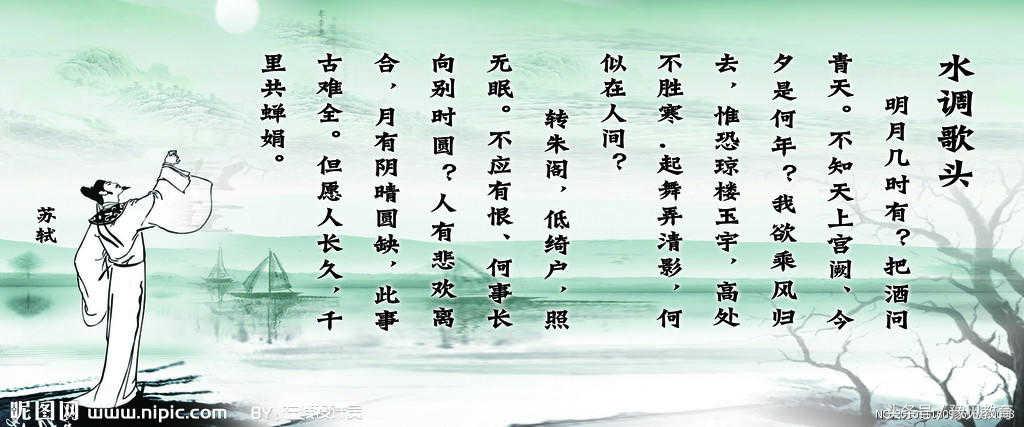 水调歌头
明月几时有？把酒问
青天。不知天上宫阙、今
夕是何年？我欲乘风归
去，惟恐琼楼玉宇，高处
不胜寒.起舞弄清影，何
似在人间？
转朱阁，低绮户，照
无眠。不应有恨、何事长
向别时圆？人有悲欢离
合，月有阴晴圆缺，此事
古难全。但愿人长久，千
里共蝉娟。
苏轼
昵图网 www.nipic.com